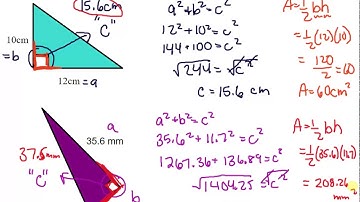 15.6cm
"C"
10cm
=b
12cm =a
a²+b²=c²
12²+10²=c²
144+100=c²
√244=√c²
c=15.6 cm
A=½bh
=½(12)(10)
=120/2=60
A=60cm²
a
35.6 mm
37.5mm
"C"
b
a²+b²=c²
35.6²+11.7²=c²
1267.36+136.89=c²
√1404.25=√c²
A=½bh
=½(35.6)(11.7)
=208.26
mm²